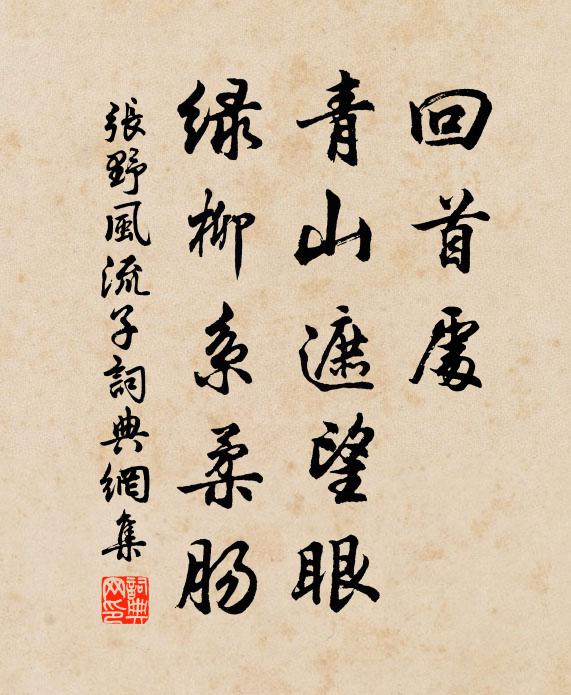 回首處
青山遮望眼
绿柳系柔肠
張野風流子詞典網集
詞典網印